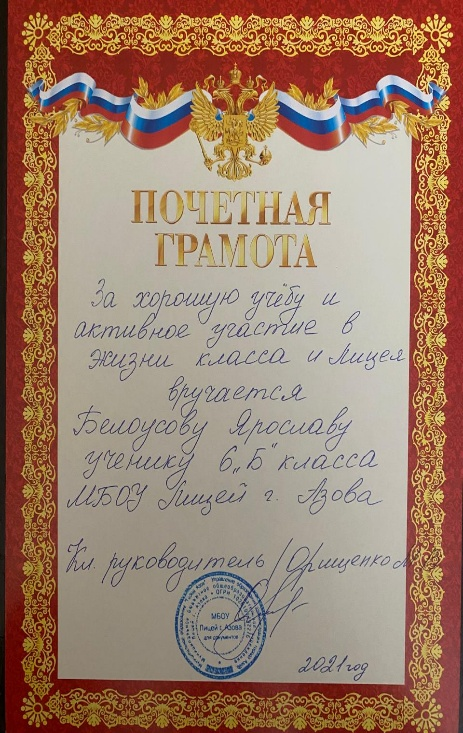 ПОЧЕТНАЯ
ГРАМОТА
За хорошую учёбу и
активное участие в
жизни класса и Лицея
вручается
Белоусову Ярославу
ученику 6 „Б" класса
МБОУ Лицей г. Азова
Кл. руководитель /Орищенко
МБОУ
Лицей г. Азова
для документов
2021 год